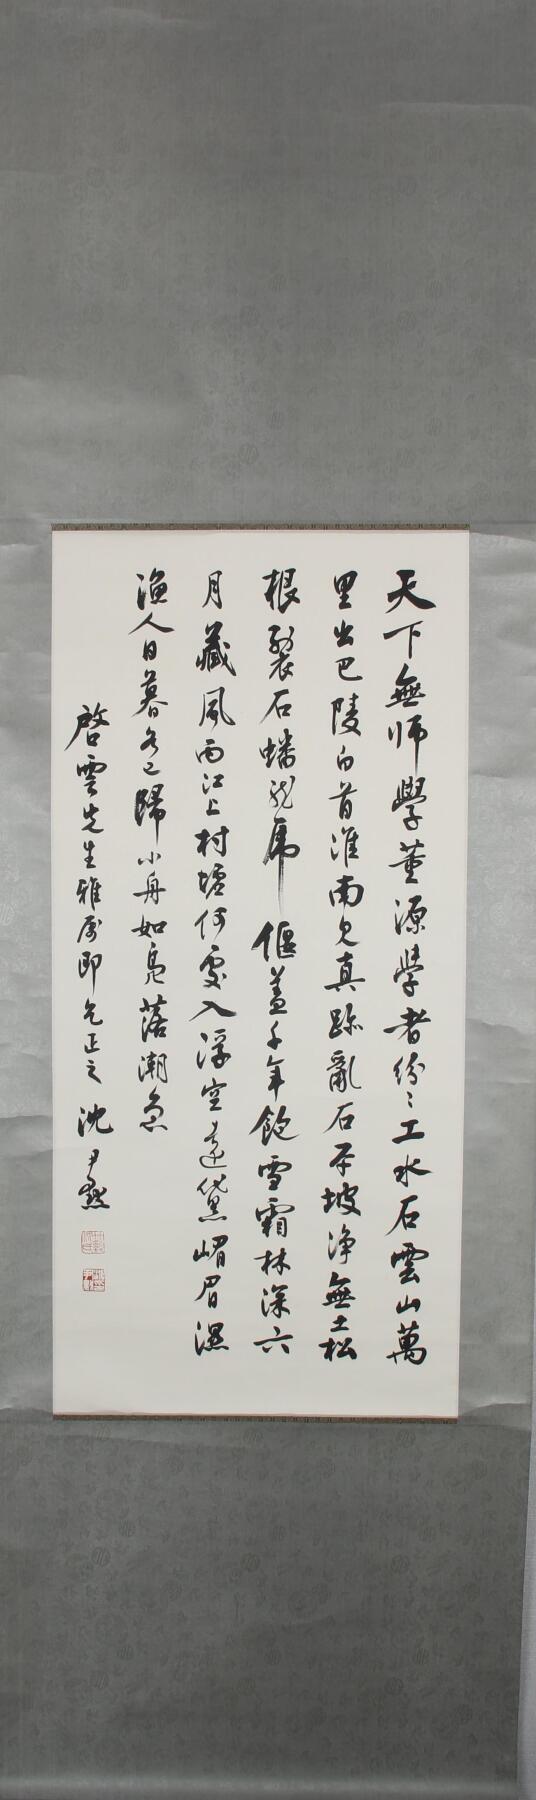 天下無師學董源學者紛々工水石雲山萬
里出巴陵白首淮南見真跡亂石平坡淨無土松
根裂石蟠龍虎偃蓋千年飽雪霜林深六
月藏風雨江上村墟何處入浮空遠黛嵋眉濕
漁人日暮各已歸小舟如鳧落潮急
啓雲先生雅屬即乞正之 沈尹默